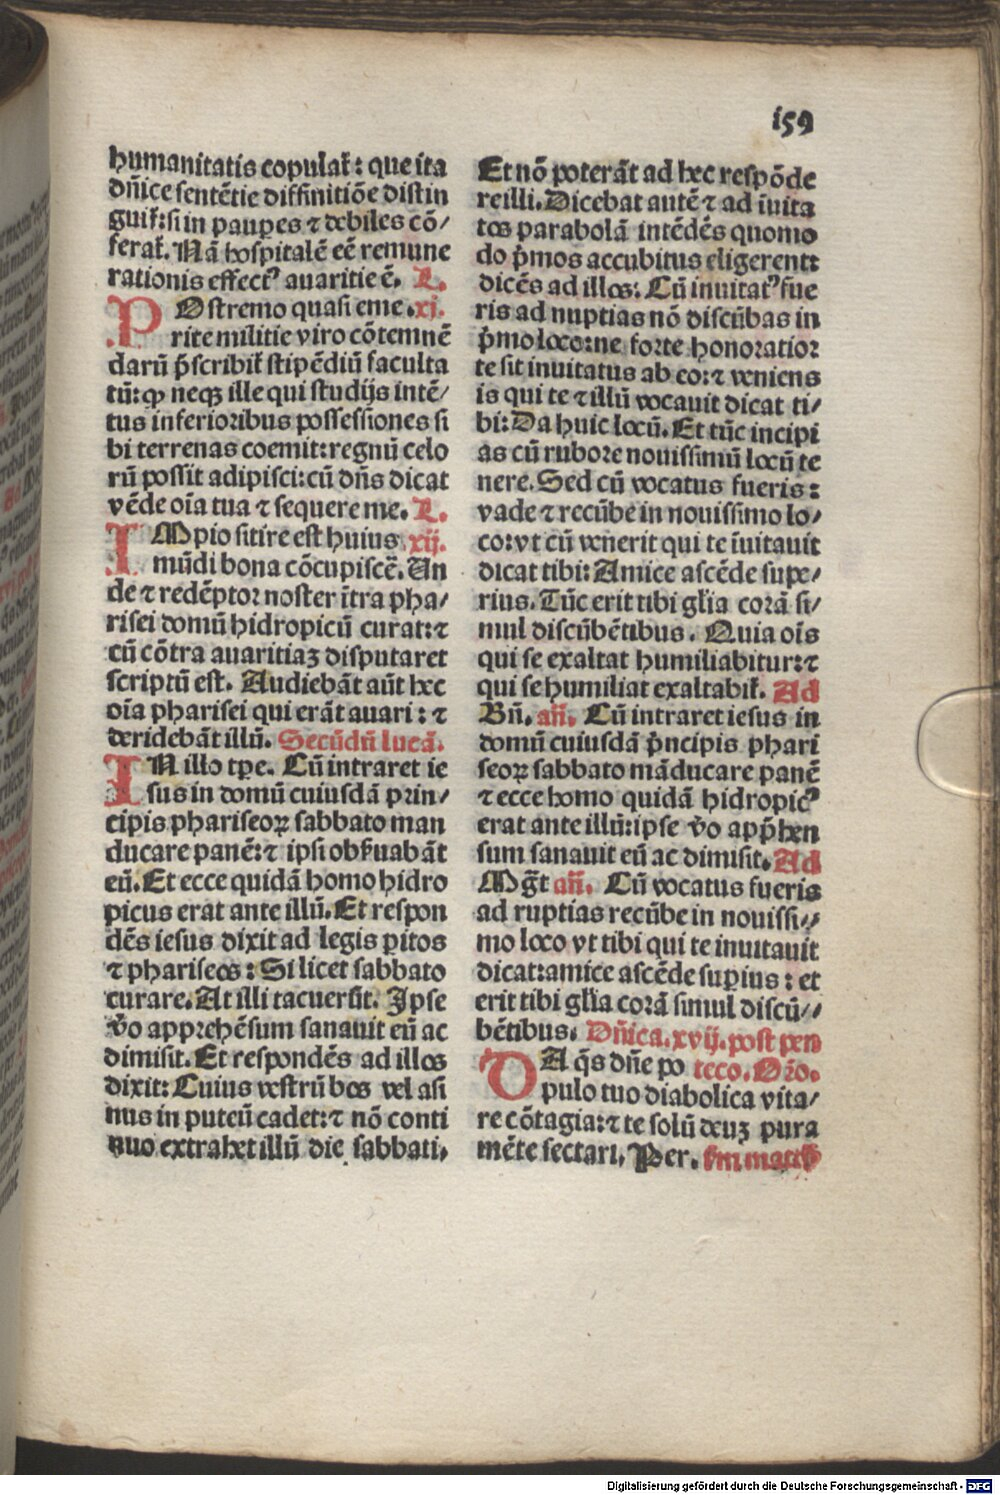 159
humanitatis copulat̄: que ita
dn̄ice sentētie diffinitiōe distin
guit̄: si in paup̲es ⁊ debiles cō/
ferat̄. Nā hospitalē eē remune
rationis effectꝰ auaritie ē. L.
POstremo quasi eme .xj.
rite militie viro cōtemnē
darū p̄scribit̄ stipēdiū faculta
tū: qꝫ neqꝫ ille qui studijs intē/
tus inferioribus possessiones si
bi terrenas coemit: regnū celo
rū possit adipisci: cū dn̄s dicat
vēde oīa tua ⁊ sequere me. L.
IMpio sitire est huius xij.
mūdi bona cōcupiscē. Un
de ⁊ redēptor noster ītra pha/
risei domū hidropicū curat: ⁊
cū cōtra auaritiaꝫ disputaret
scriptū est. Audiebāt aūt hec
oīa pharisei qui erāt auari: ⁊
deridebāt illū. Secūdū lucā.
IN illo tp̄e. Cū intraret ie
sus in domū cuiusdā prin/
cipis phariseoꝝ sabbato man
ducare panē: ⁊ ipsi obẜuabāt
eū. Et ecce quidā homo hidro
picus erat ante illū. Et respon
dēs iesus dixit ad legis ꝑitos
⁊ phariseos: Si licet sabbato
curare. At illi tacuerūt. Ipse
v̄o apprehēsum sanauit eū ac
dimisit. Et respondēs ad illos
dixit: Cuius vestrū bos vel asi
nus in puteū cadet: ⁊ nō conti
nuo extrahet illū die sabbati.
Et nō poterāt ad hec respōde
re illi. Dicebat autē ⁊ ad īuita
tos parabolā intēdēs quomo
do p̄mos accubitus eligerent:
dicēs ad illos: Cū inuitatꝰ fue
ris ad nuptias nō discūbas in
p̄mo loco: ne forte honoratior
te sit inuitatus ab eo: ⁊ veniens
is qui te ⁊ illū vocauit dicat ti/
bi: Da huic locū. Et tūc incipi
as cū rubore nouissimū locū te
nere. Sed cū vocatus fueris:
vade ⁊ recūbe in nouissimo lo/
co: vt cū venerit qui te īuitauit
dicat tibi: Amice ascēde supe/
rius. Tūc erit tibi gl̄ia corā si/
mul discūbētibus. Quia oīs
qui se exaltat humiliabitur: ⁊
qui se humiliat exaltabit̄. Ad
Bn̄. an̄. Cū intraret iesus in
domū cuiusdā p̄ncipis phari
seoꝝ sabbato māducare panē
⁊ ecce homo quidā hidropicꝰ
erat ante illū: ipse v̄o app̄hen
sum sanauit eū ac dimisit. Ad
Mḡt an̄. Cū vocatus fueris
ad ruptias recūbe in nouissi//
mo loco vt tibi qui te inuitauit
dicat: amice ascēde suꝑius: et
erit tibi gl̄ia corā simul discū//
bētibus. Dn̄ica. xvij. post pen
DA q̄s dn̄e po teco. Oro.
pulo tuo diabolica vita/
re cōtagia: ⁊ te solū deuꝫ pura
mēte sectari. Per. ẜm matth
Digitalisierung gefördert durch die Deutsche Forschungsgemeinschaft - DFG